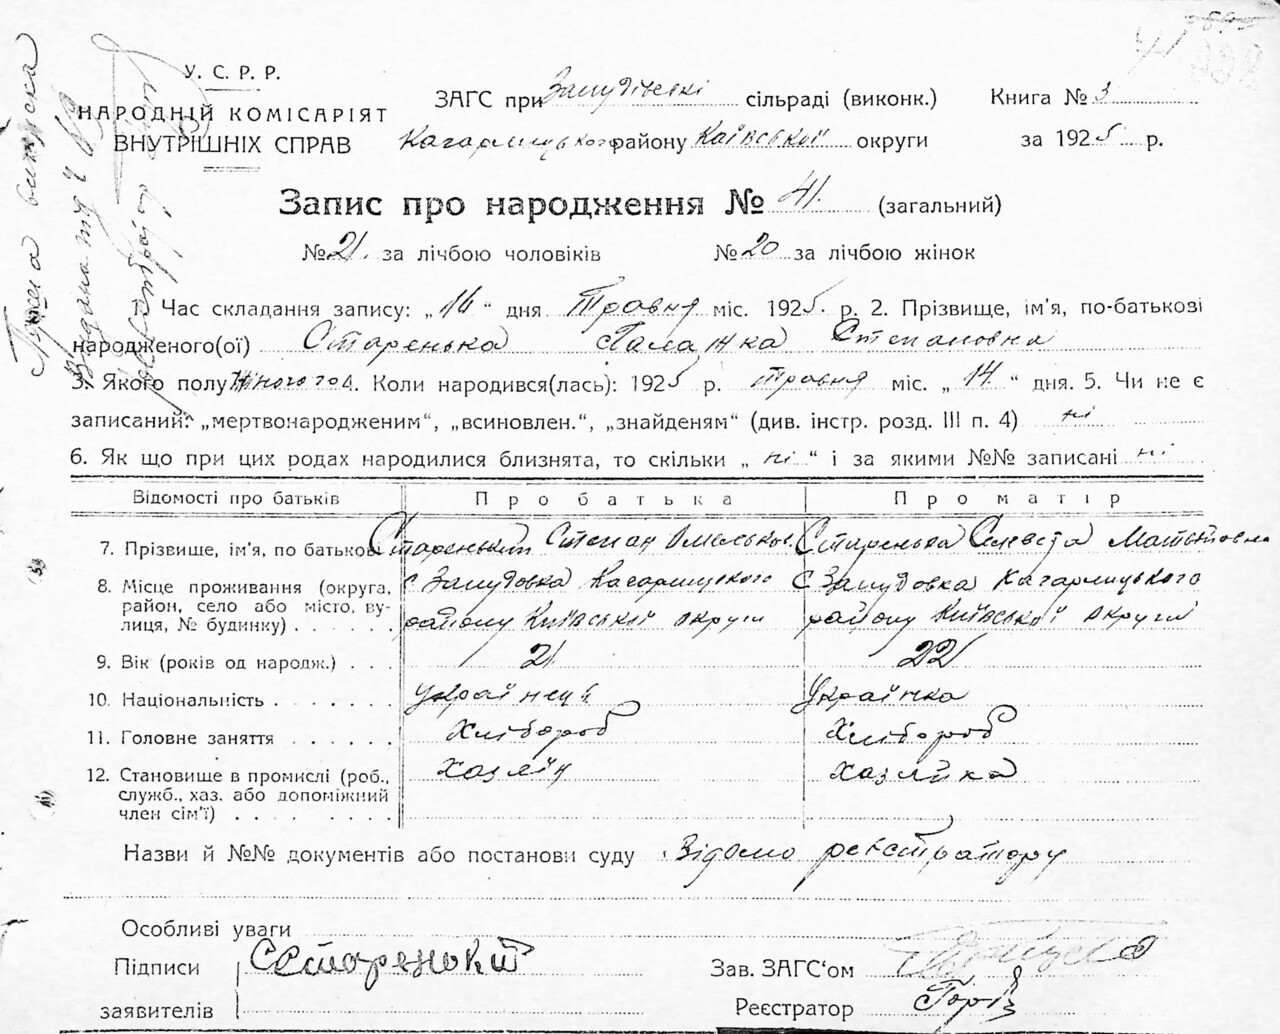 У. С. Р. Р.
НАРОДНІЙ КОМІСАРІЯТ
ВНУТРІШНІХ СПРАВ
ЗАГС при сільраді (виконк.) Книга № 3
Кагарлицького району Київської округи за 1925 р.
Запис про народження № 41. (загальний)
№ 21. за лічбою чоловіків № 20 за лічбою жінок
1. Час складання запису: „16“ дня Травня міс. 1925. р. 2. Прізвище, ім'я, по-батькові
народженого(ої) Старенька Палажка Степановна
3. Якого полу Жіночого 4. Коли народився(лась): 1925 р. травня міс. „14“ дня. 5. Чи не є
записаний: „мертвонародженим“, „всиновлен.“, „знайденям“ (див. інстр. розд. III п. 4) ні
6. Як що при цих родах народилися близнята, то скільки „ні“ і за якими №№ записані ні
Відомості про батьків Про батька Про матір
7. Прізвище, ім'я, по батькові Старенький Степан Омельков. Старенька Матвіовна
8. Місце проживання (округа, с Кагарлицького с Кагарлицького
район, село або місто, ву-
лиця, № будинку) району Київської округи району Київської округи
9. Вік (років од народж.) 21 22
10. Національність українець Українка
11. Головне заняття Хлібороб Хлібороб
12. Становище в промислі (роб., хазяїн хазяйка
служб., хаз. або допоміжний
член сім'ї)
Назви й №№ документів або постанови суду Відомо реєстратору
Особливі уваги
Підписи ССтаренький Зав. ЗАГС'ом
заявителів Реєстратор